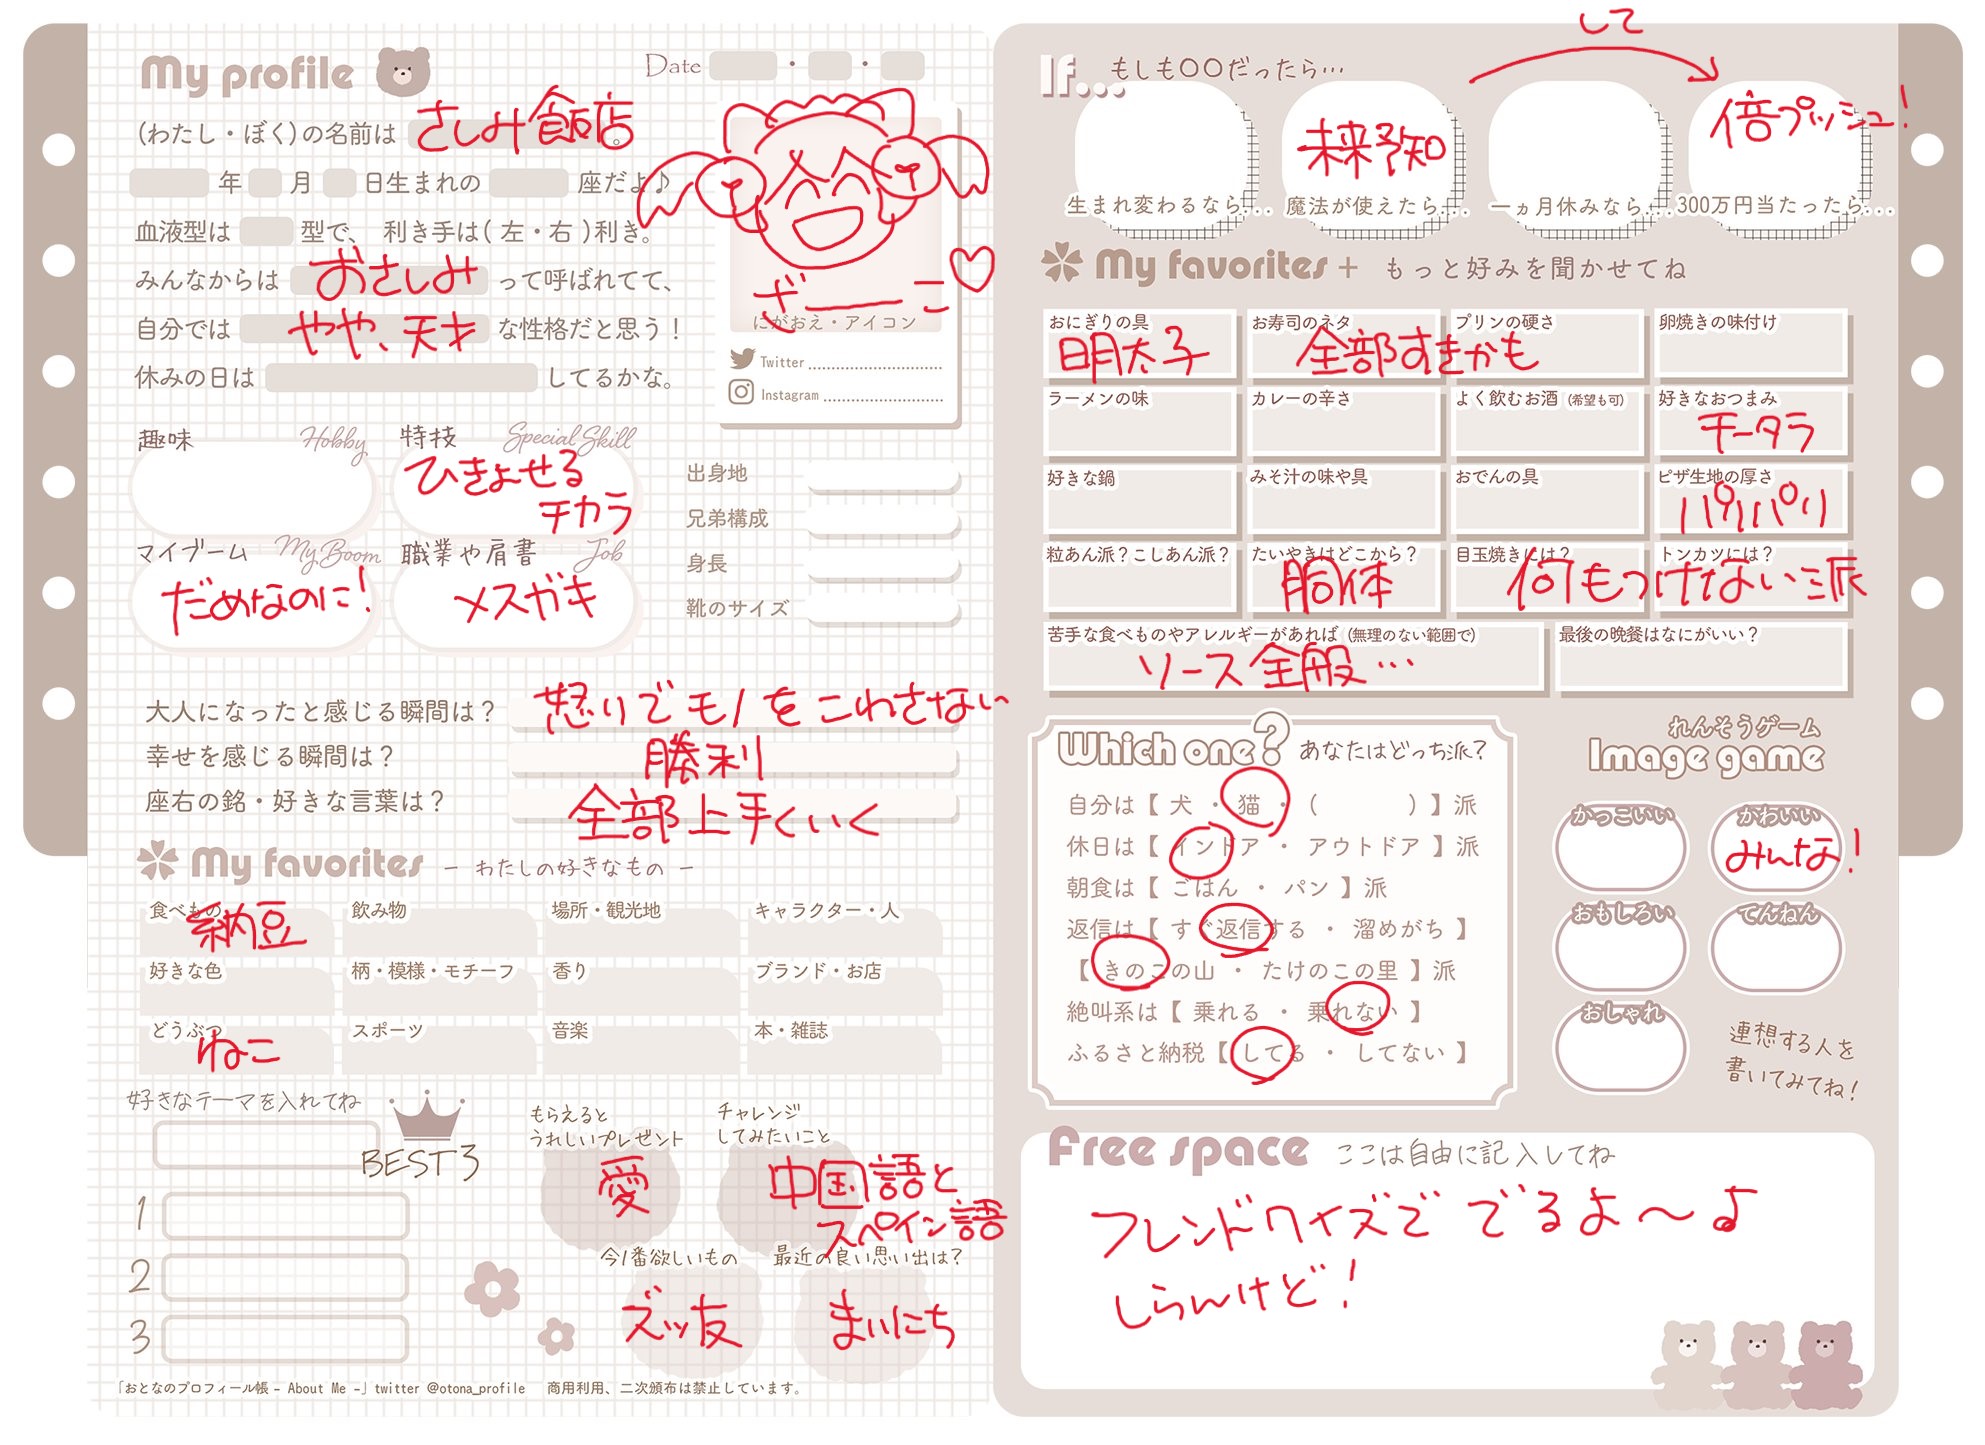 My profile
Date ・ ・
(わたし・ぼく)の名前は さしみ飯店。
年 月 日生まれの 座だよ♪
血液型は 型で、利き手は(左・右)利き。
みんなからは おさしみ って呼ばれてて、
自分では やや、天才 な性格だと思う!
休みの日は してるかな。
ざーーこ♡
にがおえ・アイコン
Twitter
Instagram
趣味 Hobby
特技 Special Skill
ひきよせる
チカラ
マイブーム My Boom
だめなのに!
職業や肩書 Job
メスガキ
出身地
兄弟構成
身長
靴のサイズ
大人になったと感じる瞬間は? 怒りでモノをこわさない
幸せを感じる瞬間は? 勝利
座右の銘・好きな言葉は? 全部上手くいく
My favorites - わたしの好きなもの -
食べもの 飲み物 場所・観光地 キャラクター・人
納豆
好きな色 柄・模様・モチーフ 香り ブランド・お店
どうぶつ スポーツ 音楽 本・雑誌
ねこ
好きなテーマを入れてね
BEST3
1
2
3
もらえると
うれしいプレゼント
愛
チャレンジ
してみたいこと
中国語と
スペイン語
今1番欲しいもの
ズッ友
最近の良い思い出は?
まいにち
「おとなのプロフィール帳 - About Me -」twitter @otona_profile 商用利用、二次頒布は禁止しています。
If... もしも〇〇だったら…
して
未来予知
倍プッシュ!
生まれ変わるなら... 魔法が使えたら... 一ヵ月休みなら... 300万円当たったら...
My favorites + もっと好みを聞かせてね
おにぎりの具 お寿司のネタ プリンの硬さ 卵焼きの味付け
明太子 全部すきかも
ラーメンの味 カレーの辛さ よく飲むお酒(希望も可) 好きなおつまみ
チータラ
好きな鍋 みそ汁の味や具 おでんの具 ピザ生地の厚さ
パリパリ
粒あん派?こしあん派? たいやきはどこから? 目玉焼きには? トンカツには?
胴体 何もつけない派
苦手な食べものやアレルギーがあれば(無理のない範囲で) 最後の晩餐はなにがいい?
ソース全般…
Which one? あなたはどっち派?
自分は【 犬 ・ 猫 ・ ( ) 】派
休日は【 インドア ・ アウトドア 】派
朝食は【 ごはん ・ パン 】派
返信は【 すぐ返信する ・ 溜めがち 】
【 きのこの山 ・ たけのこの里 】派
絶叫系は【 乗れる ・ 乗れない 】
ふるさと納税【 してる ・ してない 】
れんそうゲーム
Image game
かっこいい かわいい
みんな!
おもしろい てんねん
おしゃれ
連想する人を
書いてみてね!
Free space ここは自由に記入してね
フレンドワイズで でるよ〜よ
しらんけど!